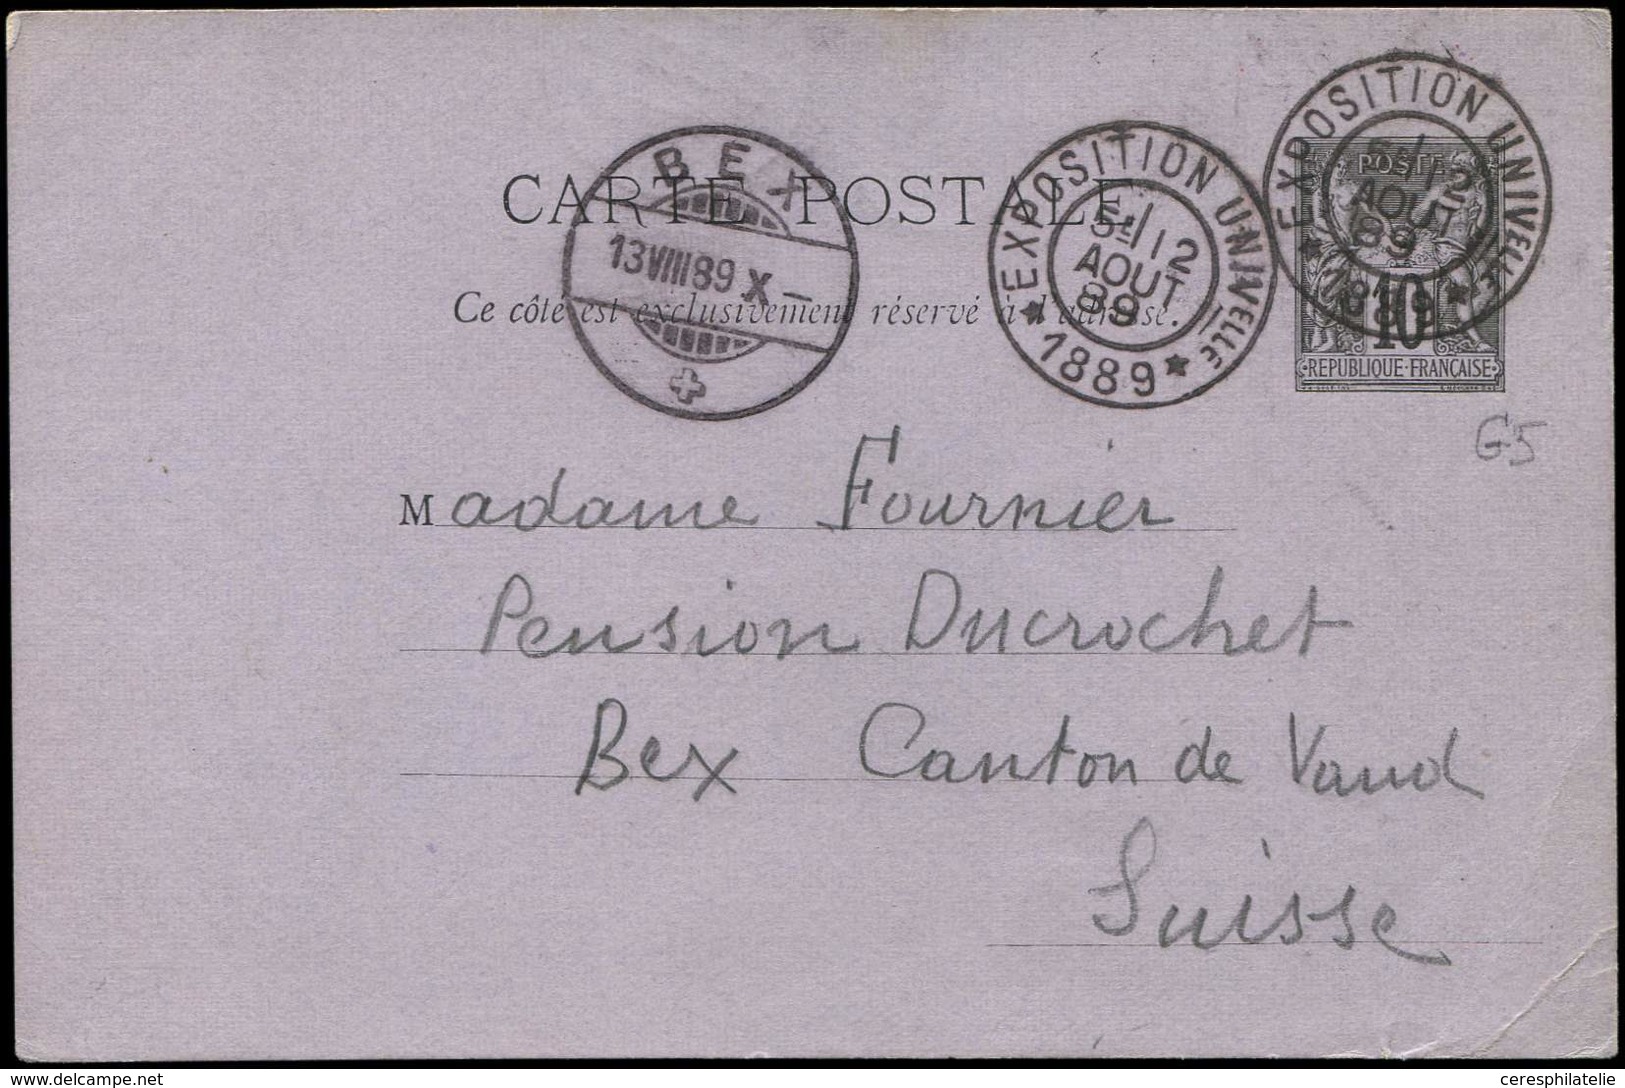 CARTE POSTALE
Ce côté est exclusivement réservé à l'adresse.
BEX
13 VIII 89 X –
EXPOSITION UNIVELLE
5E/ 12
AOUT
89
★ 1889 ★
EXPOSITION UNIVELLE
5E/ 12
AOUT
89
★ 1889 ★
POSTE
10
REPUBLIQUE FRANÇAISE
G5
Madame Fournier
Pension Ducrochet
Bex Canton de Vaud
Suisse
www.delcampe.net
ceresphilatelie